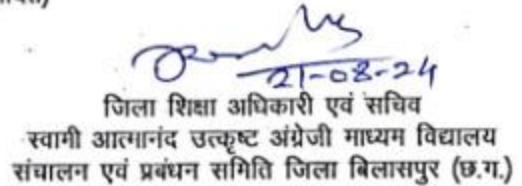 21-08-24
जिला शिक्षा अधिकारी एवं सचिव
स्वामी आत्मानंद उत्कृष्ट अंग्रेजी माध्यम विद्यालय
संचालन एवं प्रबंधन समिति जिला बिलासपुर (छ.ग.)